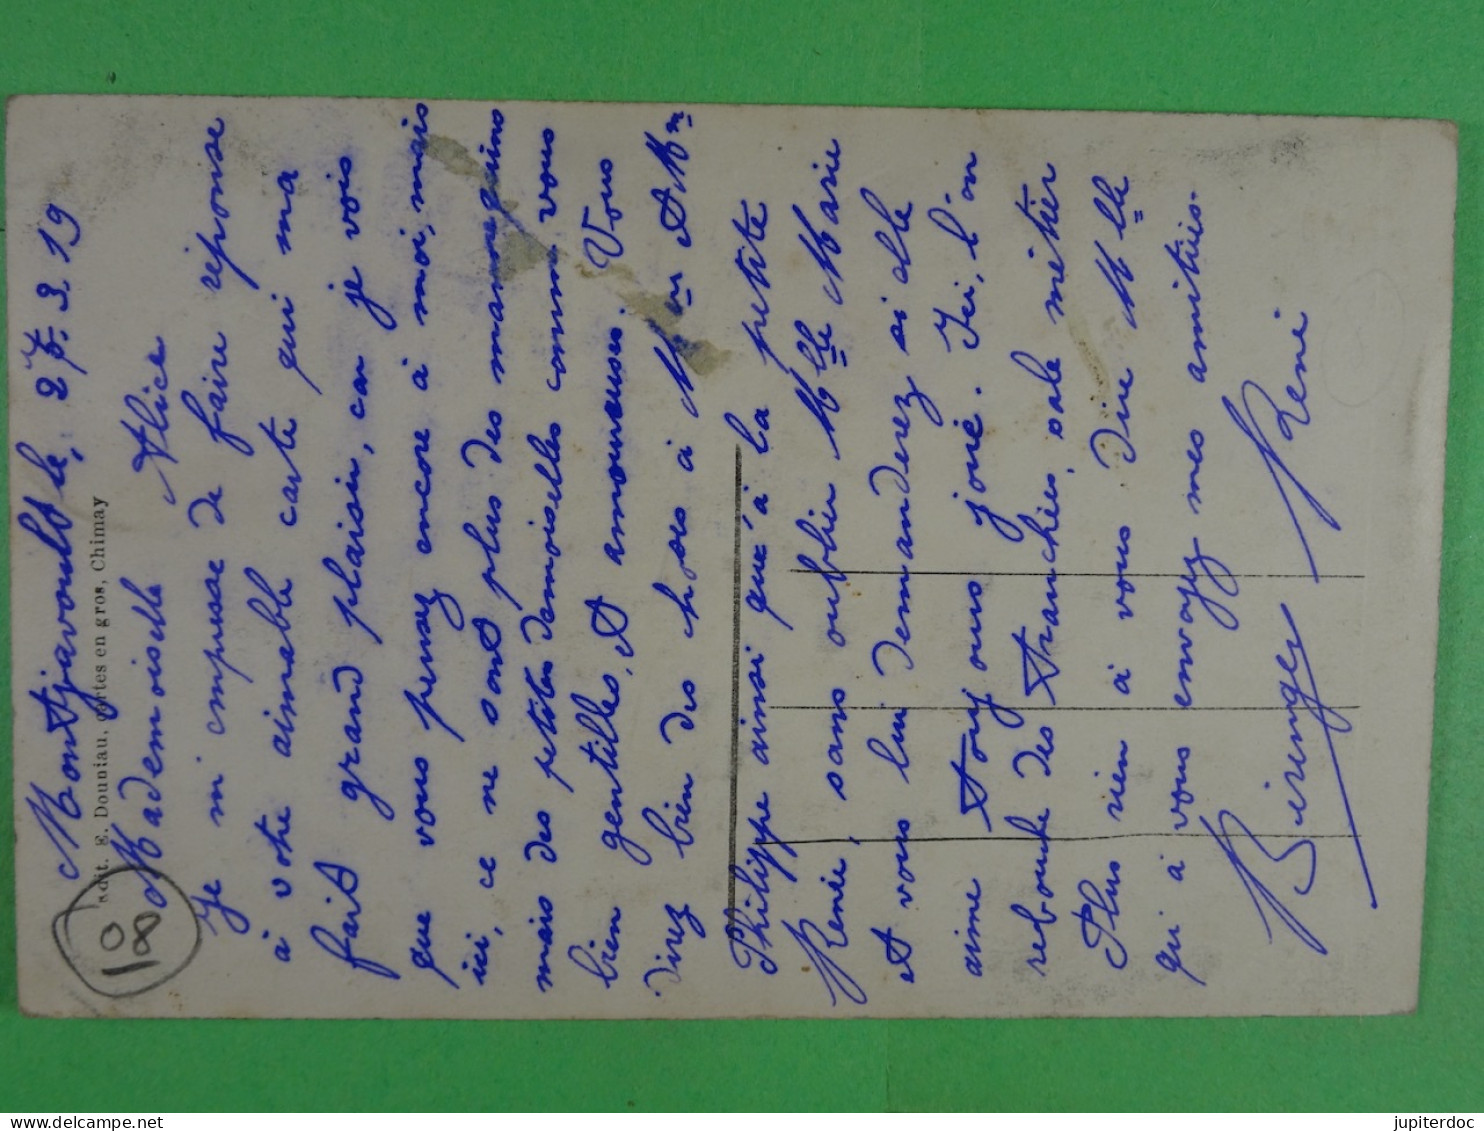 Montjavoult le, 27.3.19
Mademoiselle Alice
Je m'empresse de faire réponse
à votre aimable carte qui m'a
fait grand plaisir, car je vois
que vous pensez encore à moi, mais
ici, ce ne sont plus des mannequins
mais des petites demoiselles comme vous
bien gentilles, et amoureuses. Vous
direz bien des choses à Mr et Mm
Philippe ainsi que à la petite
Renée, sans oublier Mlle Marie
et vous lui demanderez si elle
aime toujours joué. Ici, l'on
rebouche des tranchées, sale métier
Plus rien à vous dire Mlle
qui à vous envoyez mes amitiés.
René
édit. E. Douniau, cartes en gros, Chimay
10
100
jupiterdoc